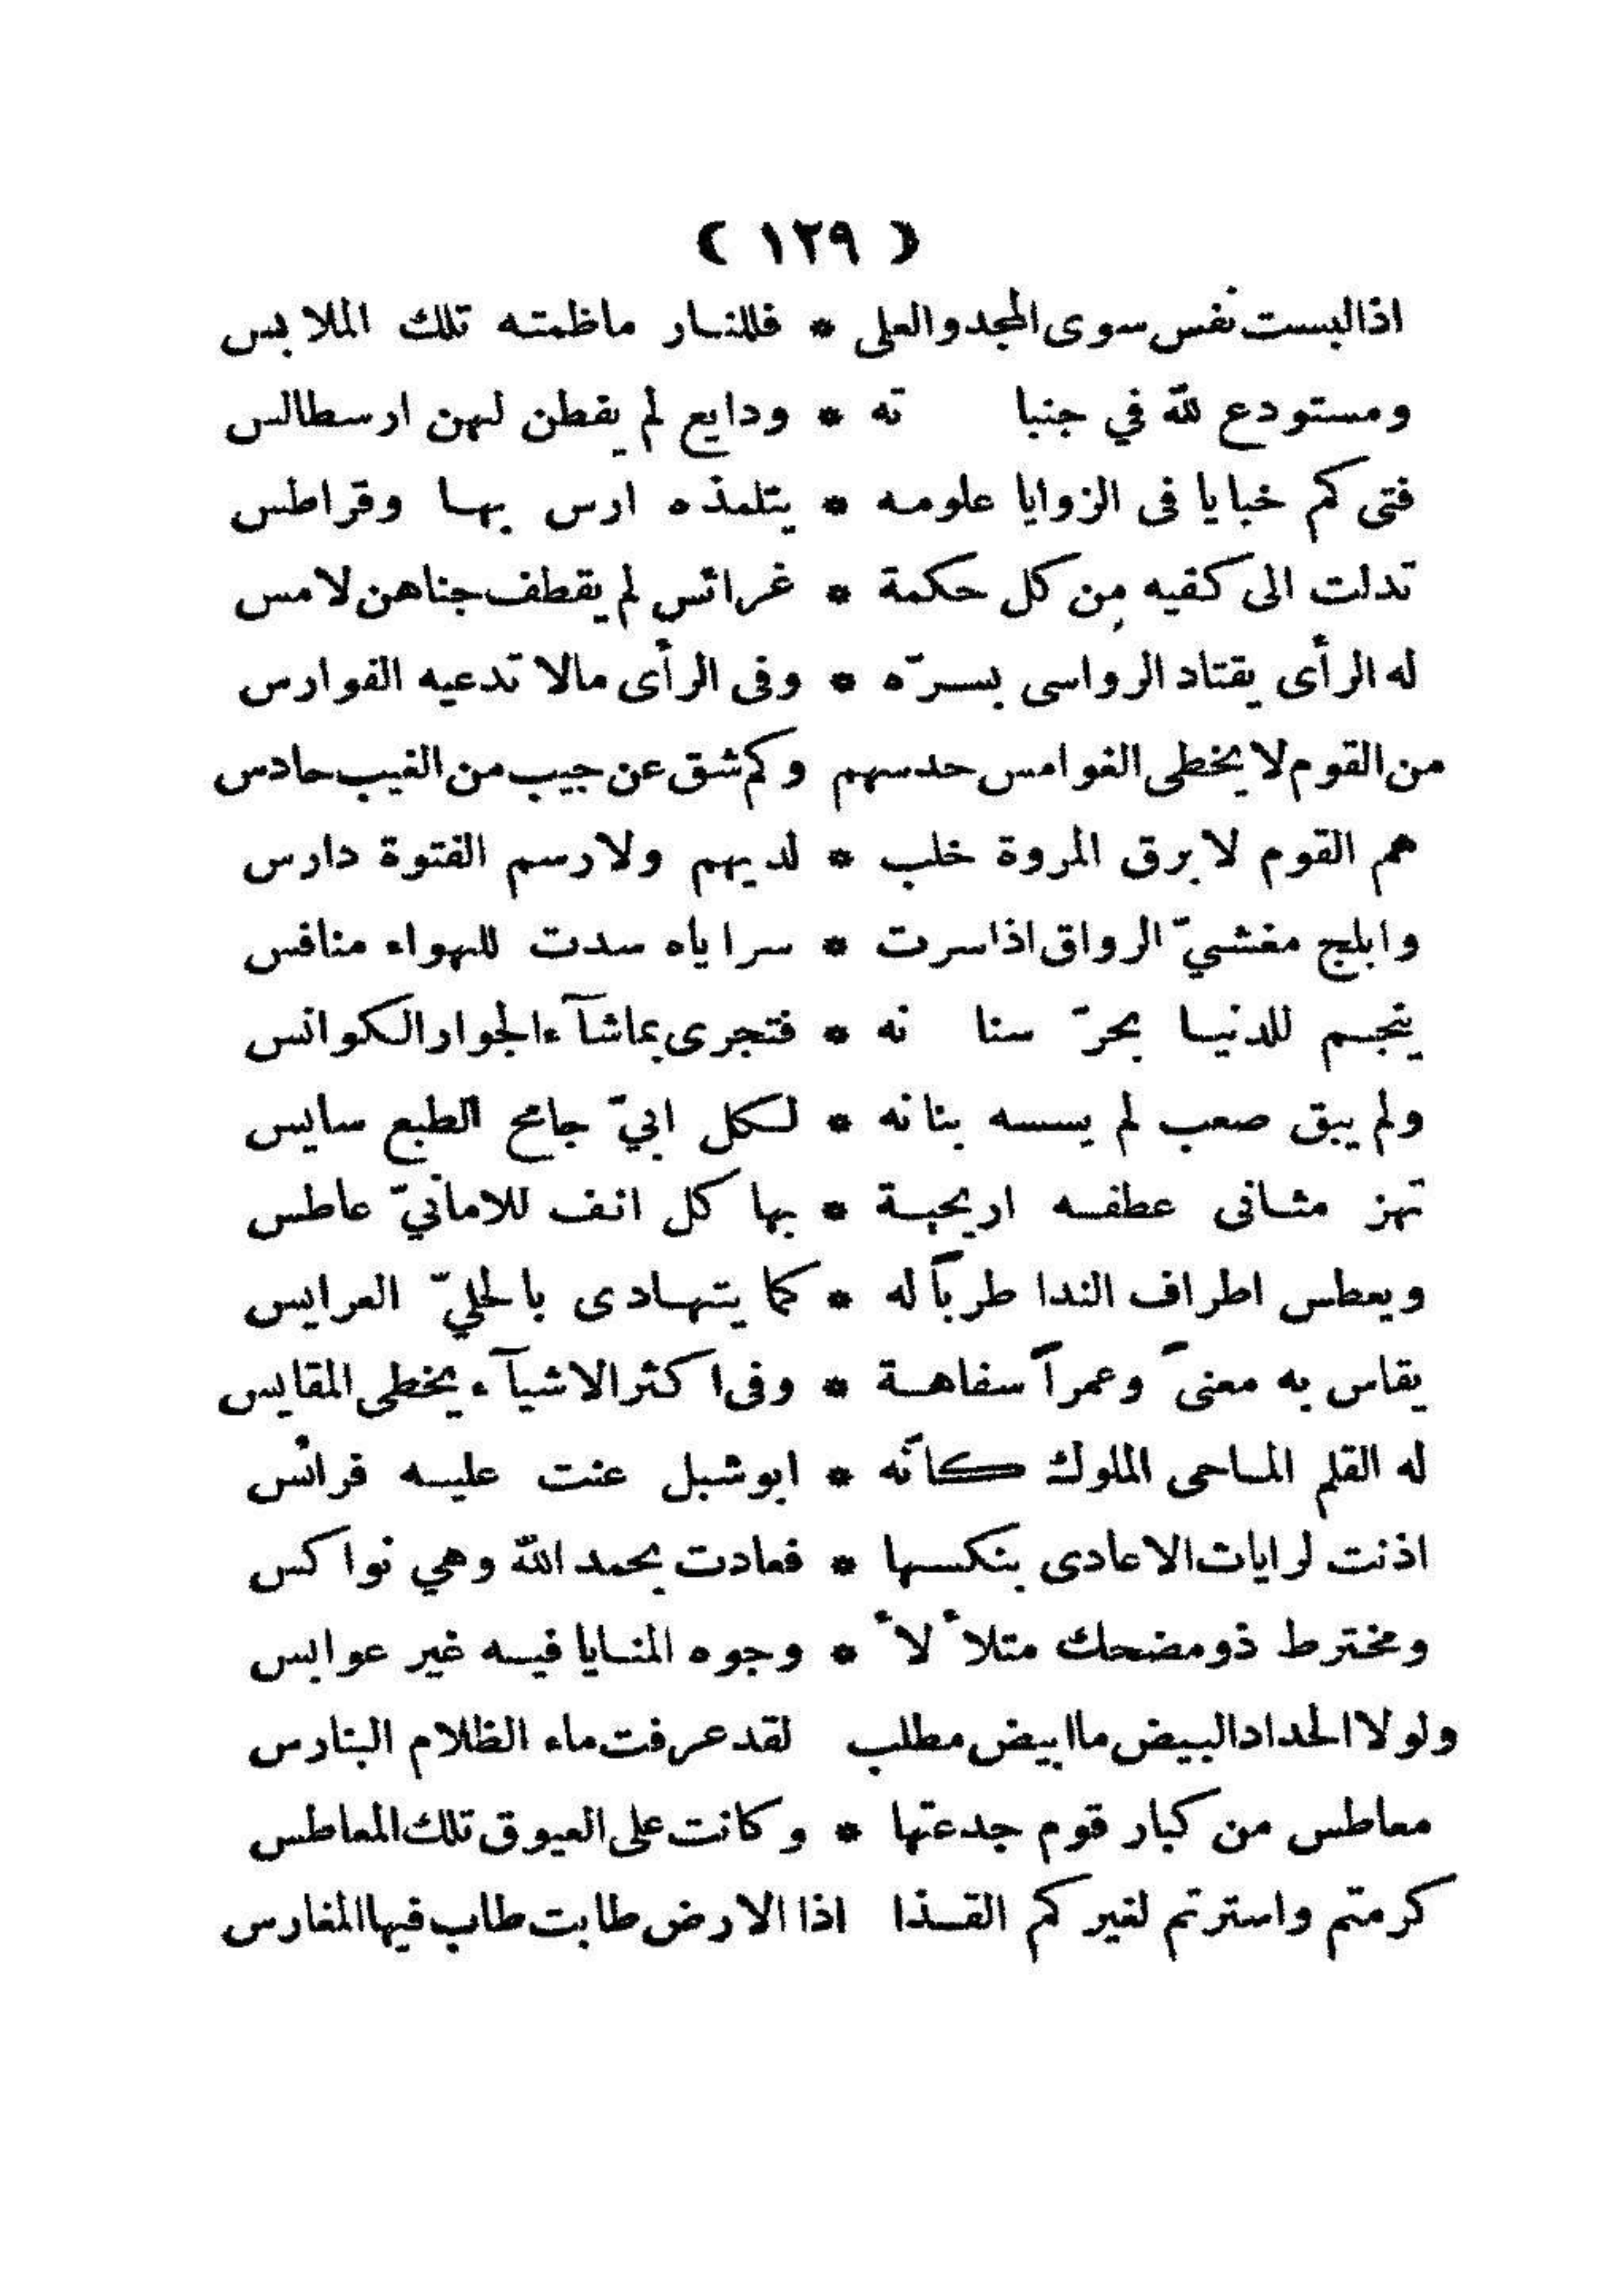 ( ١٢٩ )
اذا لبست نفس سوى المجد والعلى * فللنار ماظمته تلك الملابس
ومستودع لله في جنباته * ودايع لم يفطن لهن ارسطالس
فتى كم خبايا فى الزوايا علومه * بتلمذه ارس بها وقراطس
تدلت الى كفيه مِن كل حكمة * غرائس لم يقطف جناهن لامس
له الرأى يقتاد الرواسى بسرّه * وفى الرأى مالا تدعيه الفوارس
من القوم لا يخطى الغوامس حدسهم وكم شق عن جيب من الغيب حادس
هم القوم لا برق المروة خلب * لديهم ولا رسم الفتوة دارس
وابلج مغشيّ الرواق اذا سرت * سراياه سدت للهواء منافس
ينجم للدنيا بحرّ سنانه * فتجرى بماشآء الجوار الكوانس
ولم يبق صعب لم يسسه بنانه * لكل ابيّ جامح الطبع سايس
تهز مثانى عطفه اريحية * بها كل انف للامانيّ عاطس
ويعطس اطراف الندا طرباً له * كما يتهادى بالحليّ العرايس
يقاس به معنىً وعمراً سفاهة * وفى اكثر الاشيآء يخطى المقايس
له القلم الماحى الملوك كانّه * ابو شبل عنت عليه فرائس
اذنت لرايات الاعادى بنكسها * فعادت بحمد الله وهي نواكس
ومخترط ذو مضحك متلأ لأ * وجوه المنايا فيه غير عوابس
ولولا الحداد البيض ما ابيض مطلب لقد عرفت ماء الظلام البنارس
معاطس من كبار قوم جدعتها * وكانت على العيوق تلك المعاطس
كرمتم واسترتم لغيركم القذا اذا الارض طابت طاب فيها المغارس